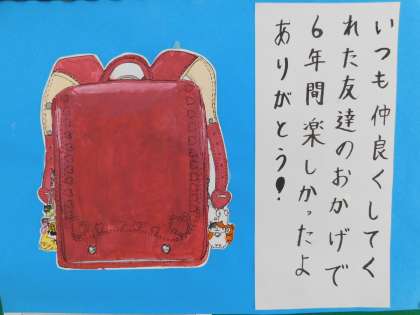 いつも仲良くしてく
れた友達のおかげで
６年間楽しかったよ
ありがとう！